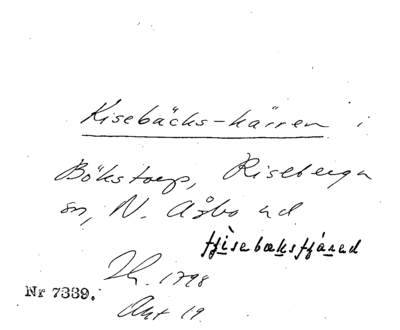 Kisebäcks-kärren i
Bökstorp, Riseberga
sn, N. Åsbo hd
Sk. 1798
Nr 7339.
Akt 19